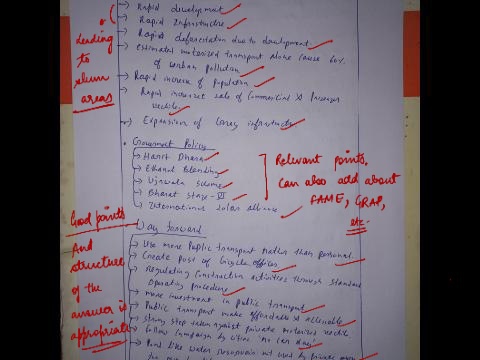 → Rapid development
→ Rapid Infrastructure
→ Rapid deforestation due to development
→ estimated motorized transport alone cause 60%
of urban pollution
→ Rapid increase of population
→ Rapid increased sale of Commercial & Passenger
vechile
→ Expansion of Gray infrastructure
Leading
to
slum
areas
• Government Policies
→ Harit Dhara
→ Ethanol Blending
→ Ujawala scheme
→ Bharat stage - VI
→ International solar alliance
Relevant points.
Can also add about
FAME, GRAP,
etc.
Good points
And
structure
of the
answer is
appropriate
Way forward
→ Use more Public transport rather than personal
→ Create Post of Bicycle officer
→ Regulating Construction activities through standard
Operating procedure
→ more investment in public transport
→ Public transport make affordable & accessible
→ strong step taken against private motorized vechile
→ follow Campaign by cities 'no car day'
→ Road like water reservoir not used by private